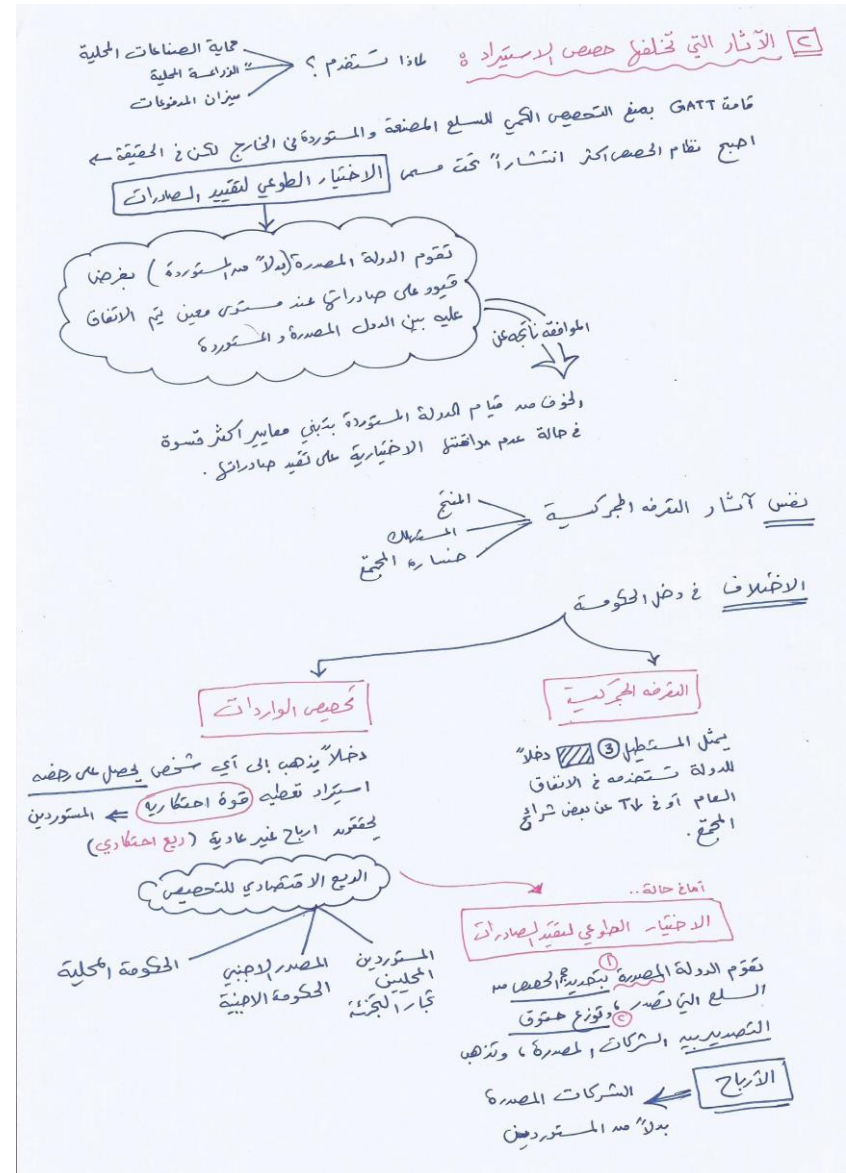 ٢ الآثار التي تخلفها حصص الاستيراد : لماذا تستخدم ؟
حماية الصناعات المحلية
" الزراعة المحلية
ميزان المدفوعات
قامت GATT بمنع التحصيص الكمي للسلع المصنعة والمستوردة في الخارج لكن في الحقيقة
اصبح نظام الحصص اكثر انتشاراً تحت مسمى الاختيار الطوعي لتقييد الصادرات
تقوم الدولة المصدرة (بدلاً من المستوردة) بفرض
قيود على صادراتها عند مستوى معين يتم الاتفاق
عليه بين الدول المصدرة و المستوردة
الموافقة ناتجه عن
الخوف من قيام الدولة المستوردة بتبني معايير اكثر قسوة
في حالة عدم موافقتها الاختيارية على تقيد صادراتها .
نفس آثار التعرفه الجمركية
المنتج
المستهلك
خسارة المجتمع
الاختلاف في دخل الحكومة
التعرفه الجمركية
يمثل المستطيل ③ دخلاً
للدولة تستخدمه في الانفاق
العام أو في ↓T عن بعض شرائح
المجتمع .
تحصيص الواردات
دخلاً يذهب إلى أي شخص يحصل على رخصه
استيراد تعطيه قوة احتكارية ⇐ المستوردين
يحققون ارباح غير عادية (ريع احتكاري)
الريع الاقتصادي للتحصيص
المستوردين
المحليين
تجار التجزئة
المصدر الاجنبي
الحكومة الاجنبية
الحكومة المحلية
أما في حالة ..
الاختيار الطوعي لتقيد الصادرات
تقوم الدولة المصدرة ① بتحديد حجم الحصص من
السلع التي تصدر ، ② وتوزع حقوق
التصدير بين الشركات المصدرة ، وتذهب
الأرباح ⇐ الشركات المصدرة
بدلاً من المستوردين